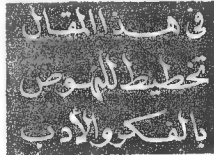 في هذا المقال
تخطيط للنهوض
بالفكر والأدب